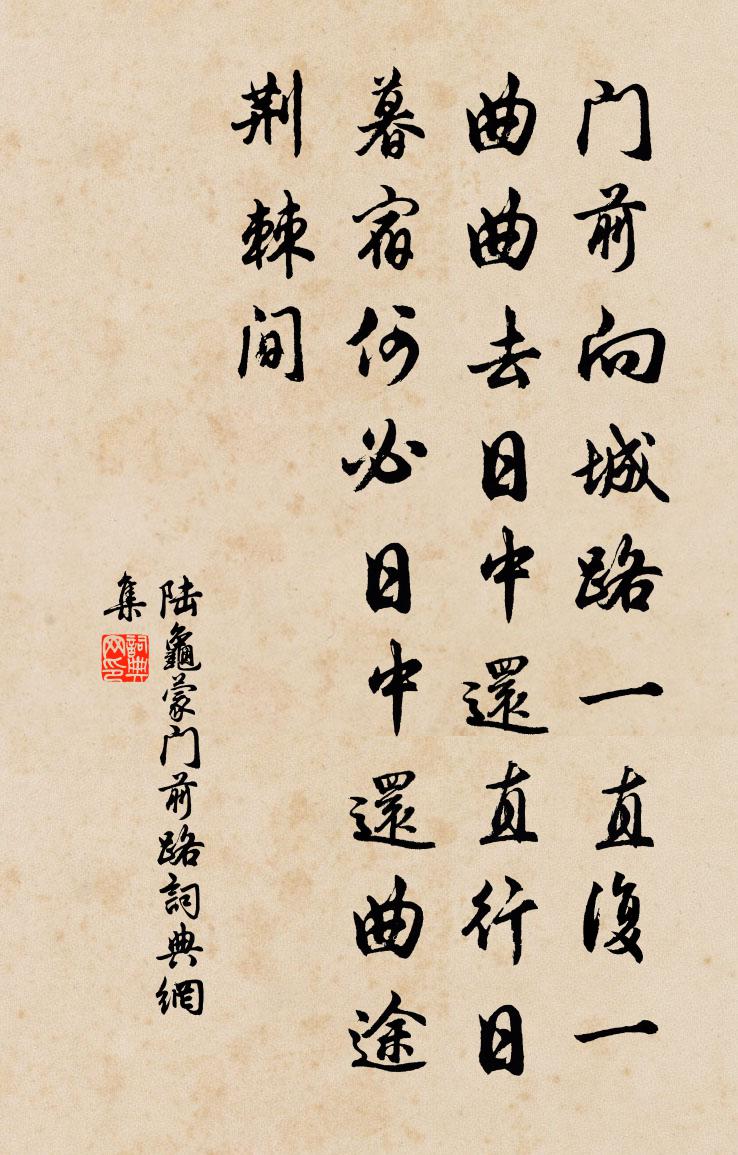 门前向城路一直復一
曲曲去日中還直行日
暮宿何必日中還曲途
荆棘间
陆龜蒙门前路詞典網
集
詞典
网印